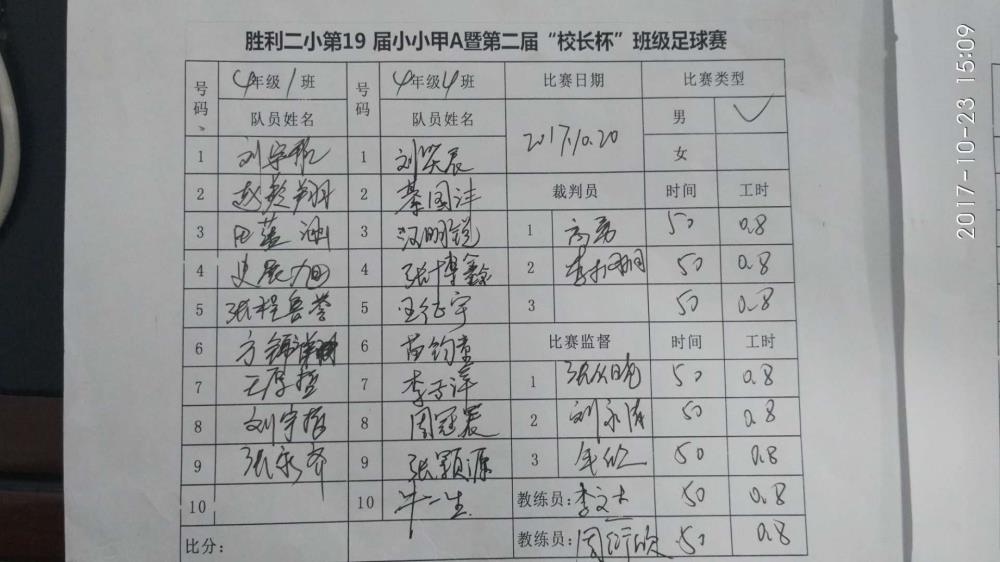 胜利二小第19 届小小甲A暨第二届“校长杯”班级足球赛
号码、 4年级1班 号码 4年级4班 比赛日期 比赛类型
队员姓名 队员姓名 2017.10.20 男 ✓
女
1 刘宇 1 刘笑辰
2 赵 翔 2 綦国沣 裁判员 时间 工时
3 田蓝 3 明锐 1 高勇 50 0.8
4 史展 4 张博鑫 2 李 50 0.8
5 张程鲁誉 5 王征宇 3 50 0.8
6 方锦 6 苗钧童 比赛监督 时间 工时
7 王厚哲 7 李子洋 1 张 50 0.8
8 刘宇哲 8 周冠霖 2 刘永涛 50 0.8
9 张永齐 9 张颢源 3 50 0.8
10 10 牛一生 教练员:李文杰 50 0.8
比分: 教练员:周 欣 50 0.8
2017-10-23 15:09